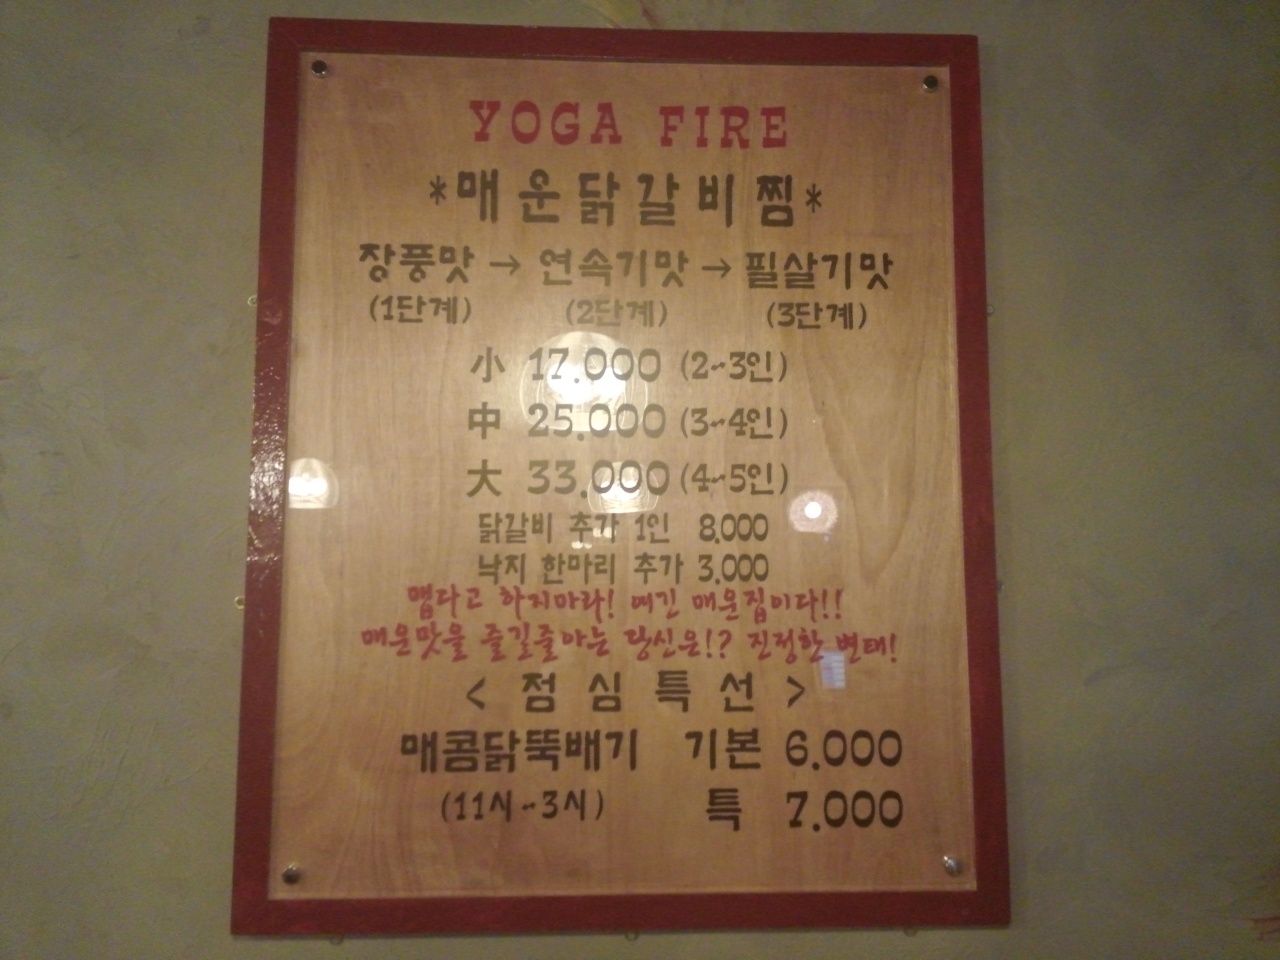 YOGA FIRE
*매운닭갈비찜*
장풍맛 → 연속기맛 → 필살기맛
(1단계) (2단계) (3단계)
小 17.000 (2~3인)
中 25.000 (3~4인)
大 33.000 (4~5인)
닭갈비 추가 1인 8.000
낙지 한마리 추가 3.000
맵다고 하지마라! 여긴 매운집이다!!
매운맛을 즐길줄아는 당신은!? 진정한 변태!
< 점 심 특 선 >
매콤닭뚝배기 기본 6.000
(11시~3시) 특 7.000